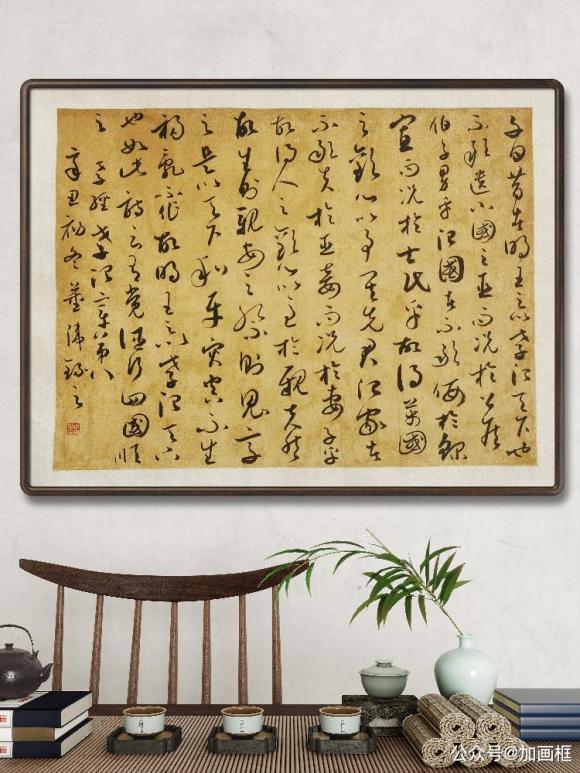 子曰昔者明王之以孝治天下也
不敢遺小國之臣而況於公侯
伯子男乎治國者不敢侮於鰥
寡而況於士民乎故得萬國
之歡心以事其先君治家者
不敢失於臣妾而況於妻子乎
故得人之歡心以事於親夫然
故生則親安之祭則鬼享
之是以天下和平災害不生
禍亂不作故明王之以孝治天下
也如此詩云有覺德行四國順
之 孝經孝治章第八
辛丑初冬
公众号@加画框